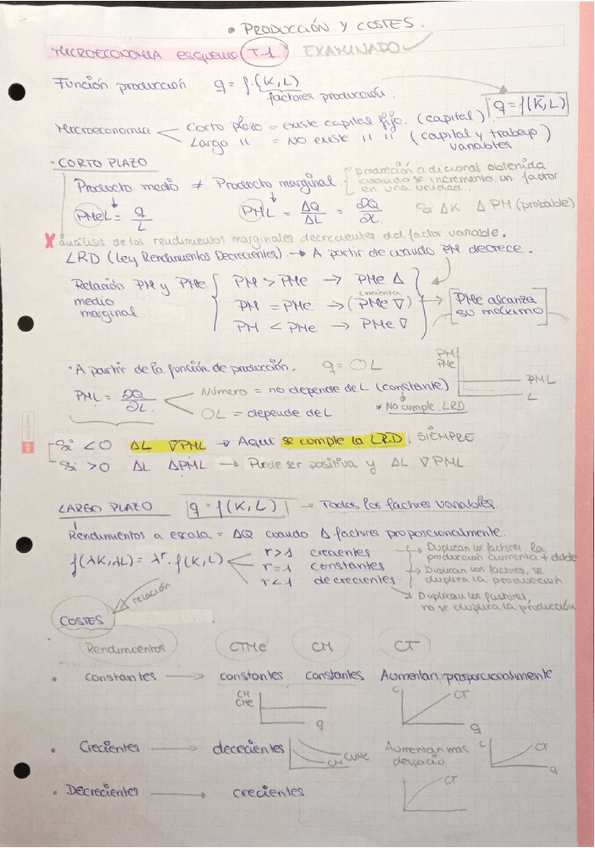 • PRODUCCIÓN Y COSTES.
MICROECONOMIA esquema T.1 EXAMINADO
Función producción q = f.(K,L)
factores producción.
q = f(K̄,L)
Microeconomía
Corto plazo = existe capital fijo. (capital)
Largo " = NO existe " " (capital y trabajo)
variables
• CORTO PLAZO
Producto medio ≠ Producto marginal
producción adicional obtenida
cuando se incrementa un factor
en una unidad.
PMeL = q/L
PML = ΔQ/ΔL = ∂Q/∂L
Si ΔK ΔPM (probable)
X análisis de los rendimientos marginales decrecientes del factor variable.
LRD (Ley Rendimientos Decrecientes). → A partir de cuando PM decrece.
Relación PM y PMe
medio
marginal
PM > PMe → PMe Δ
PM = PMe → (PMe ∇)
PM < PMe → PMe ∇
PMe alcanza
su máximo
• A partir de la función de producción. q = OL
PM
PMe
PML
L
PML = ∂Q/∂L
Número = no depende de L (constante)
* No cumple LRD
OL = depende de L
Si <0 ΔL ∇PML → Aquí se cumple la LRD. SIEMPRE
Si >0 ΔL ΔPML → Puede ser positiva y ΔL ∇PML.
LARGO PLAZO q = f(K,L) → Todos los factores variables.
Rendimientos a escala = ΔQ cuando Δ factores proporcionalmente.
f(λK,λL) = λʳ. f(K,L)
r>1 crecientes
r=1 constantes
r<1 decrecientes
→ Duplican los factores la
producción aumenta + doble
→ Duplican los factores, se
duplica la producción
→ Duplican los factores,
no se duplica la producción
relación
COSTES
Rendimientos CTMe CM CT
• constantes → constantes constantes Aumentan proporcionalmente
CM
CMe
q
C
CT
q
• Crecientes → decrecientes
CM
Aumentan mas
despacio
C
CT
q
• Decrecientes → crecientes
CT